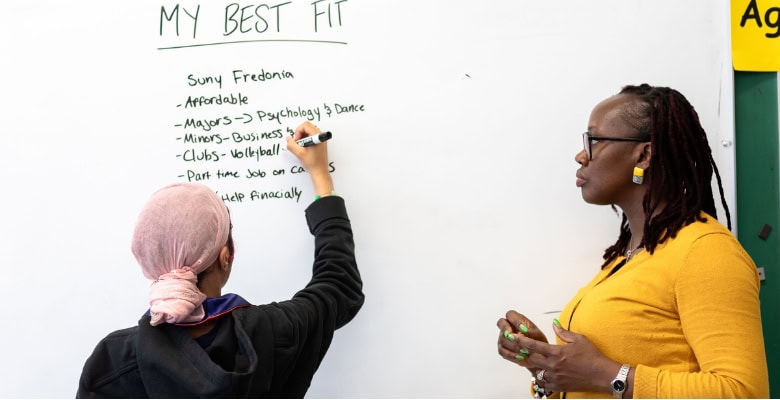 MY BEST FIT
Ag
Suny Fredonia
-Affordable
-Majors -> Psychology & Dance
-Minors- Business &
-Clubs- Volleyball
-Part time Job on
Help Finacially